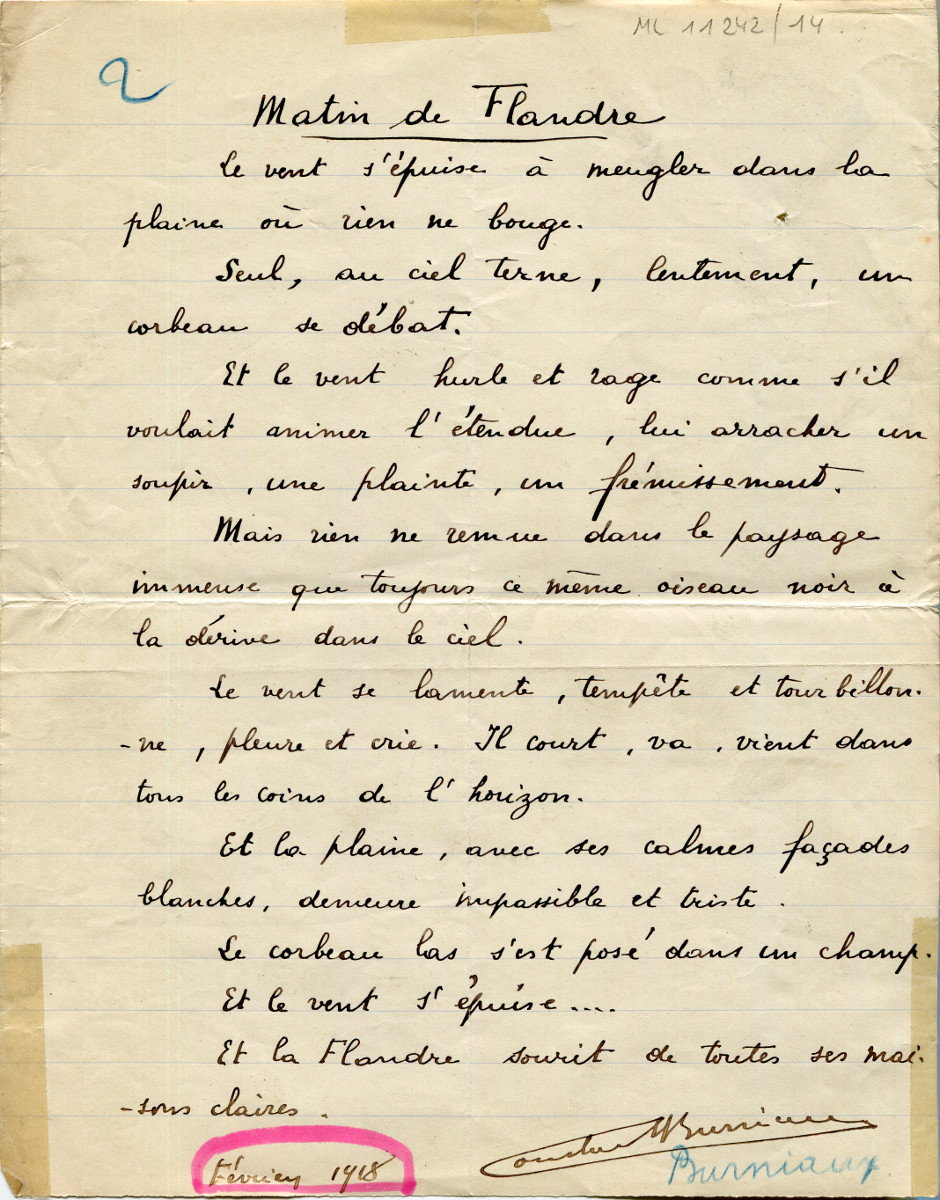 ML 11242/14
2
Matin de Flandre
Le vent s'épuise à meugler dans la
plaine où rien ne bouge.
Seul, au ciel terne, lentement, un
corbeau se débat.
Et le vent hurle et rage comme s'il
voulait animer l'étendue, lui arracher un
soupir, une plainte, un frémissement.
Mais rien ne remue dans le paysage
immense que toujours ce même oiseau noir à
la dérive dans le ciel.
Le vent se lamente, tempête et tourbillon-
-ne, pleure et crie. Il court, va, vient dans
tous les coins de l'horizon.
Et la plaine, avec ses calmes façades
blanches, demeure impassible et triste.
Le corbeau las s'est posé dans un champ.
Et le vent s'épuise....
Et la Flandre sourit de toutes ses mai-
-sons claires.
Constant Burniaux
Février 1918
Burniaux